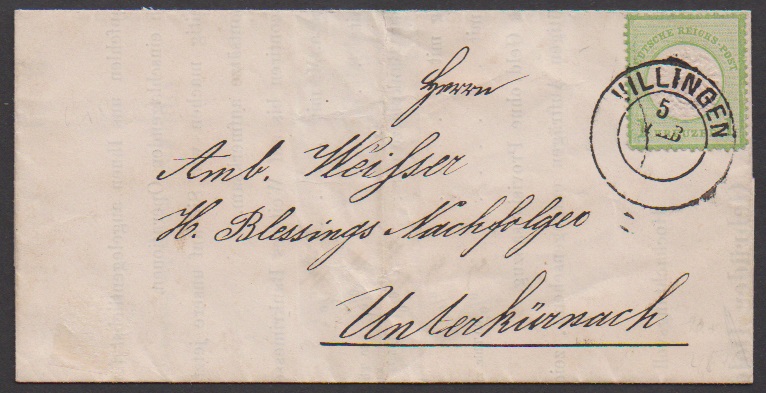 DEUTSCHE REICHS-POST
KREUZER
VILLINGEN
5
FEB
Herrn
Amb. Weißer
H. Blessings Nachfolger
Unterkürnach